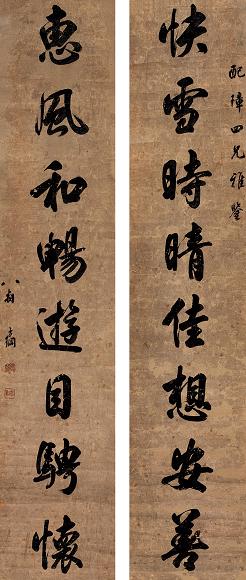 配璋四兄雅鑒
快雪時晴佳想安善
惠風和暢遊目騁懷